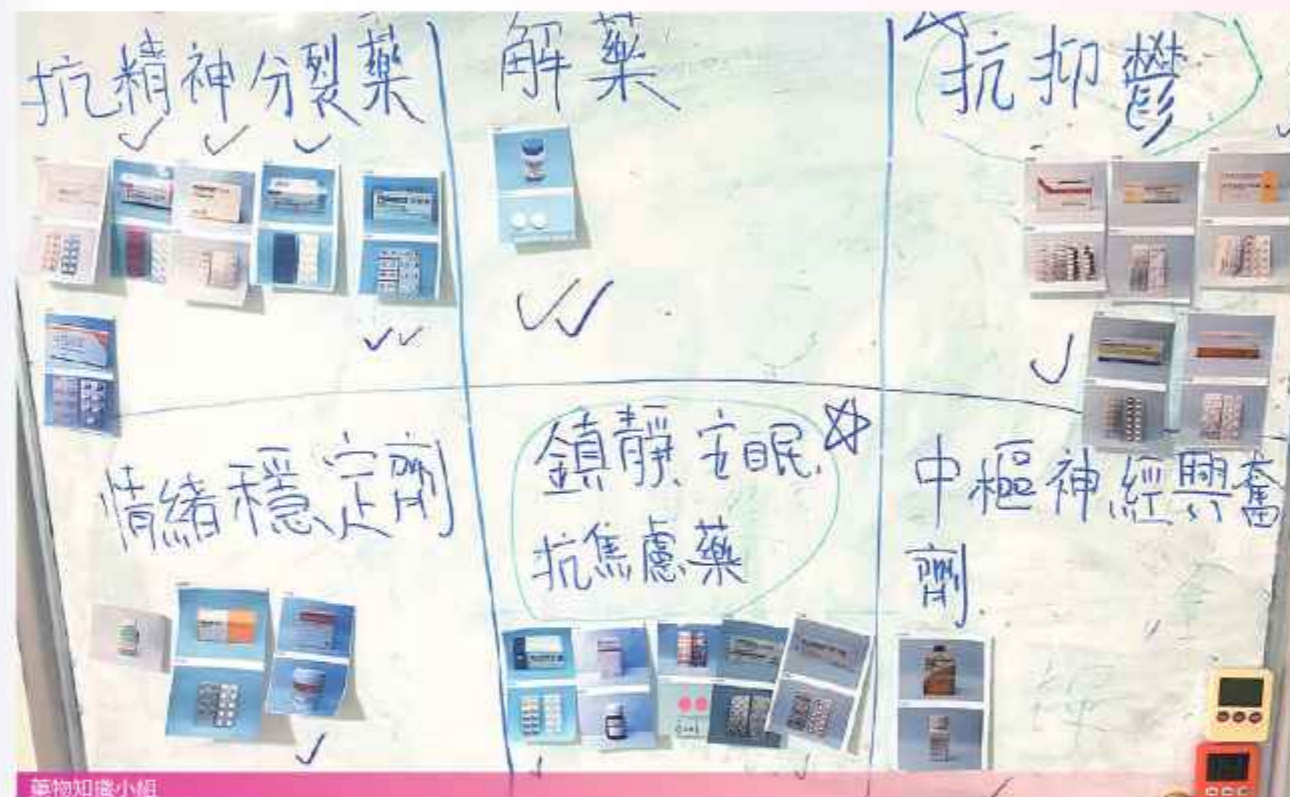 抗精神分裂藥
解藥
抗抑鬱
情緒穩定劑
鎮靜安眠
抗焦慮藥
中樞神經興奮
劑
藥物知識小組